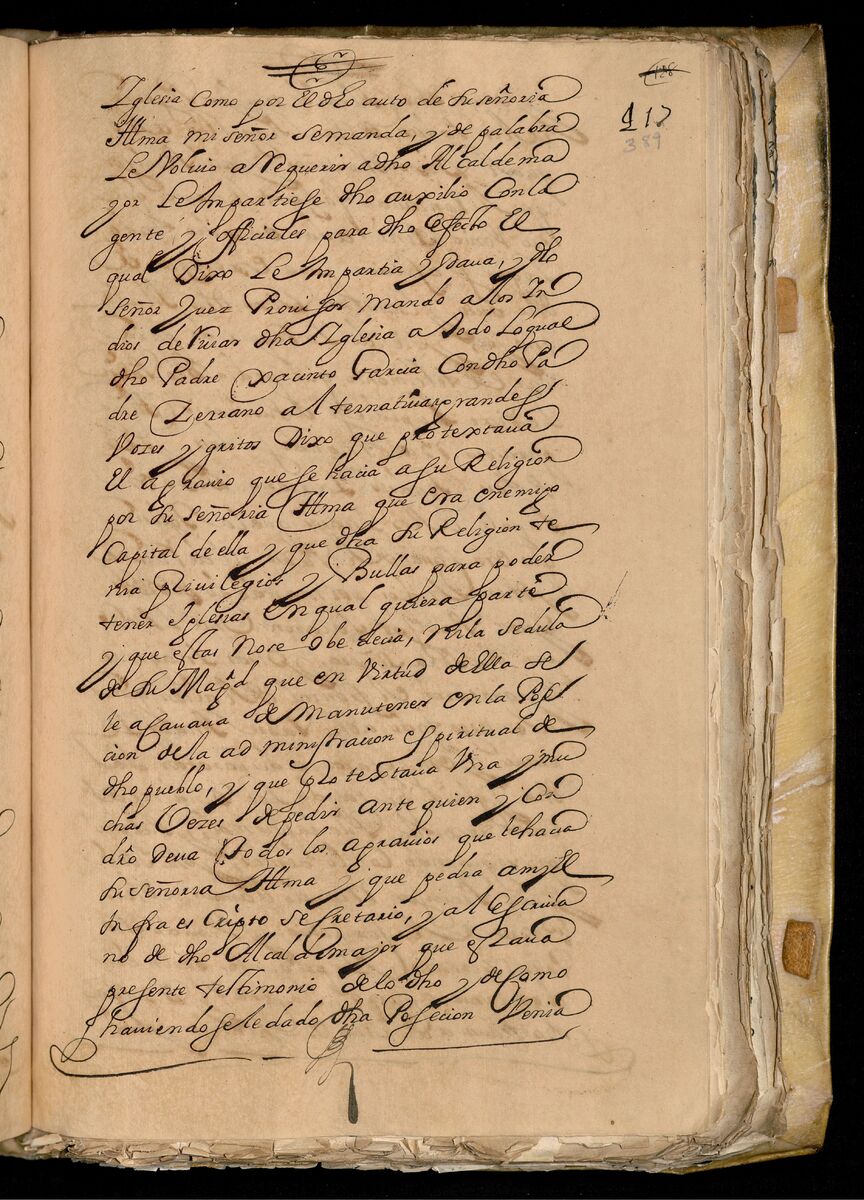 128
117
389
Iglesia Como por El dho auto de su señoria
Illma mi señor semanda, y de palabra
Le Volvio a Requerir a dho Alcaldema
jor Le Impartiese dho auxilio Con la
gente y officiales para dho efecto El
qual Dixo Le Impartia y dava, y dho
señor Juez Provisor mando a los In
dios deVirar dha Iglesia a todo Loqual
dho Padre Xacinto Garcia Con dho Pa
dre Zerrano alternativas grandes
Vozes y gritos Dixo que protextava
El agravio que se hacia a su Religion
por su señoria Illma que era enemigo
Capital de ella y que dha su Religion te
nia Privilegios y Bullas para poder
tener Iglesias en qual quiera parte
y que estas nose obedecia, ni la sedula
de su Magd que en Virtud de Ella se
le acavava de manutener en la Pose
cion de la administracion espiritual de
dho pueblo, y que protextava Una y mu
chas Vezes de pedir ante quien y Con
dro deva todos los agravios que le hacia
su señoria Illma y que pedia a mi El
Infraescripto secretario, y al escriva
no de dho Alcalde major que estava
presente testimonio de lo dho y de Como
haviendosele dado dha Posecion Venia